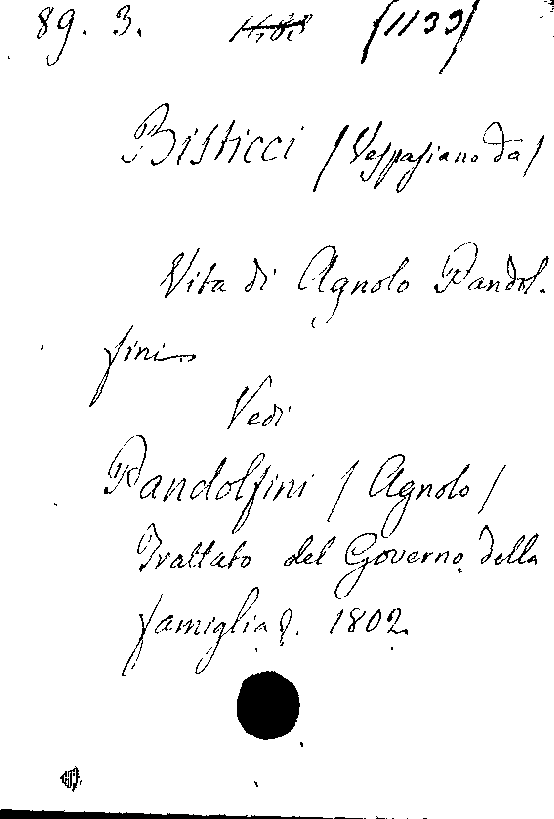 89. 3. (1133)
Bisticci (Vespasiano da)
Vita di Agnolo Pandol-
fini
Vedi
Pandolfini (Agnolo)
Trattato del Governo della
famiglia &. 1802